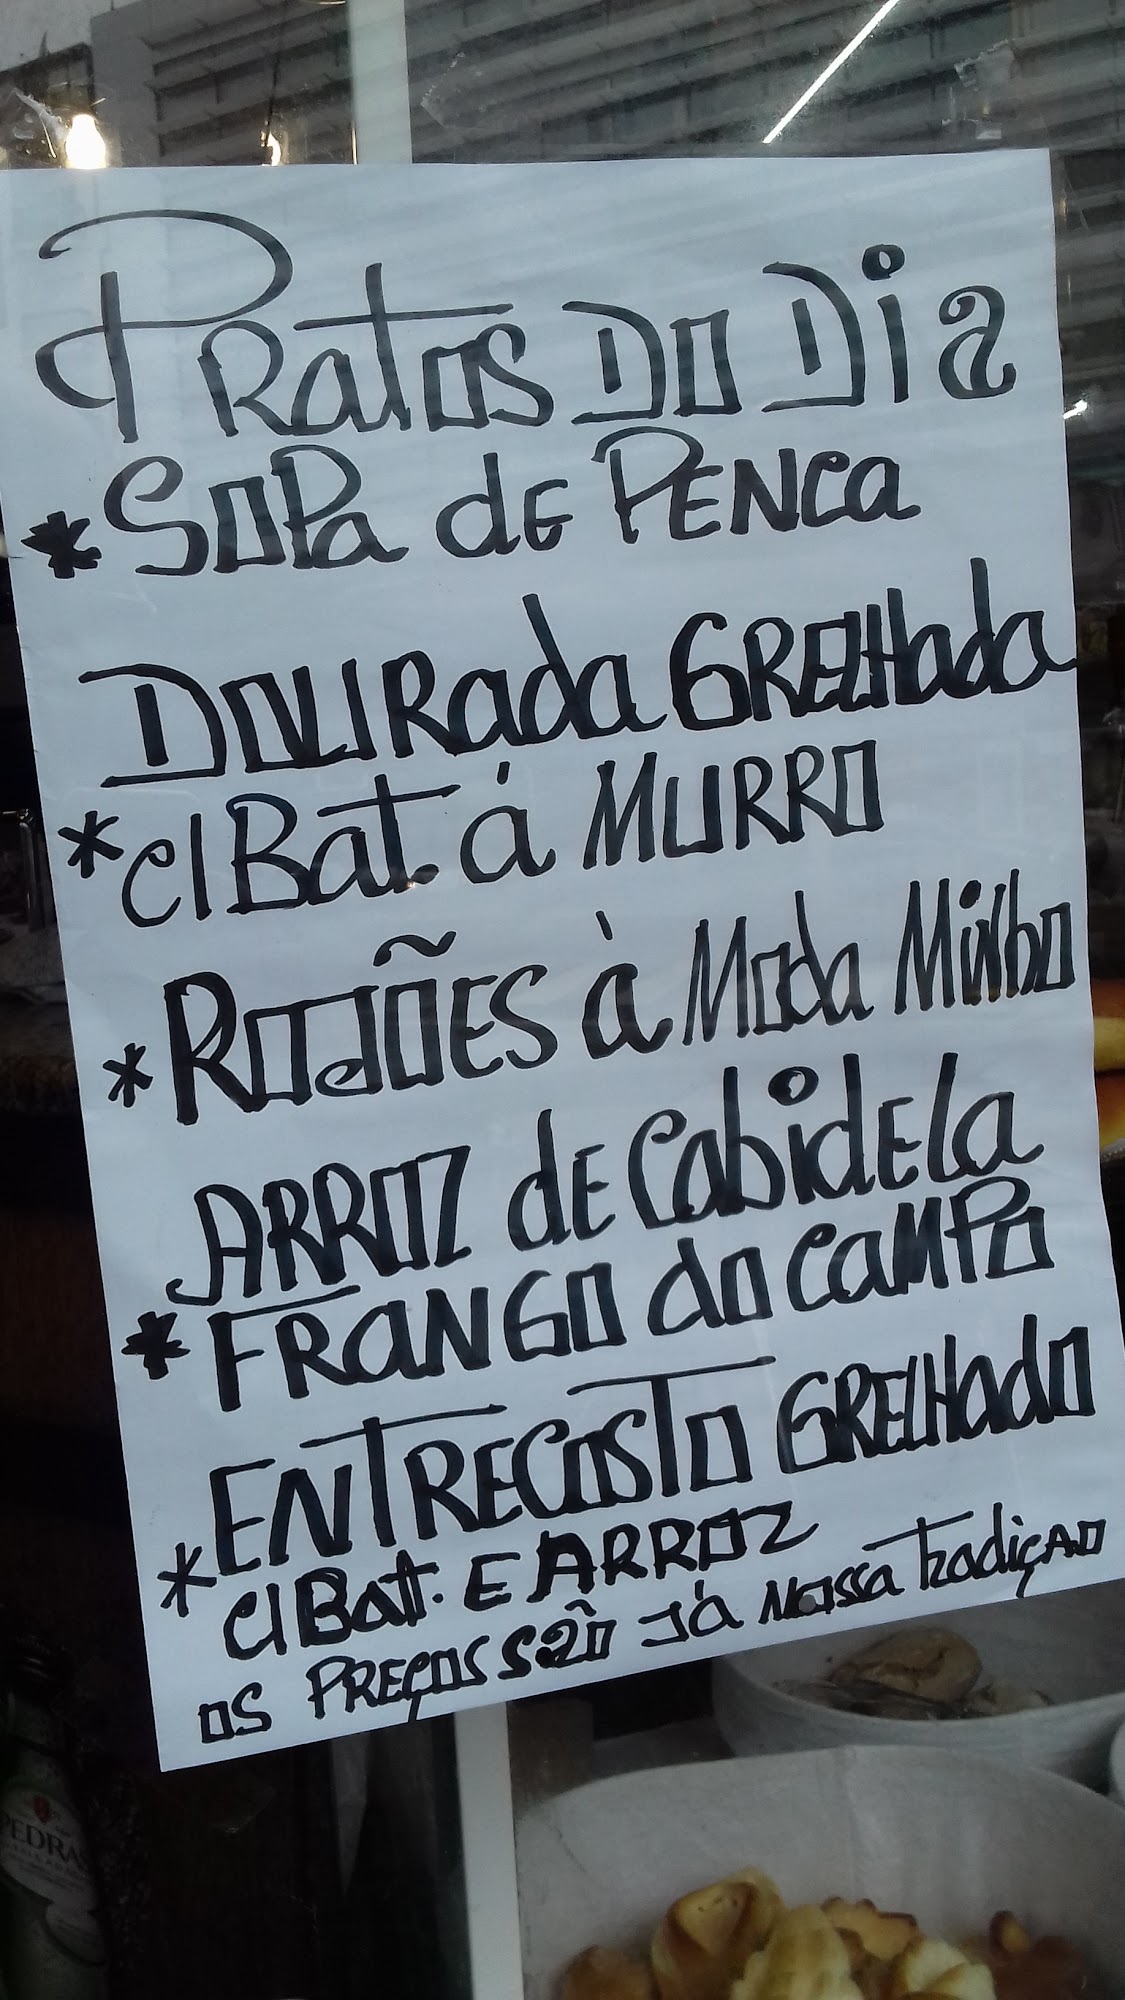 Pratos do Dia
* Sopa de Penca
Dourada Grelhada
* c/ Bat. á Murro
* Rojões à Moda Minho
Arroz de Cabidela
* Frango do Campo
Entrecosto Grelhado
* c/ Bat. e Arroz
os Preços são já Nossa Tradição
PEDRAS